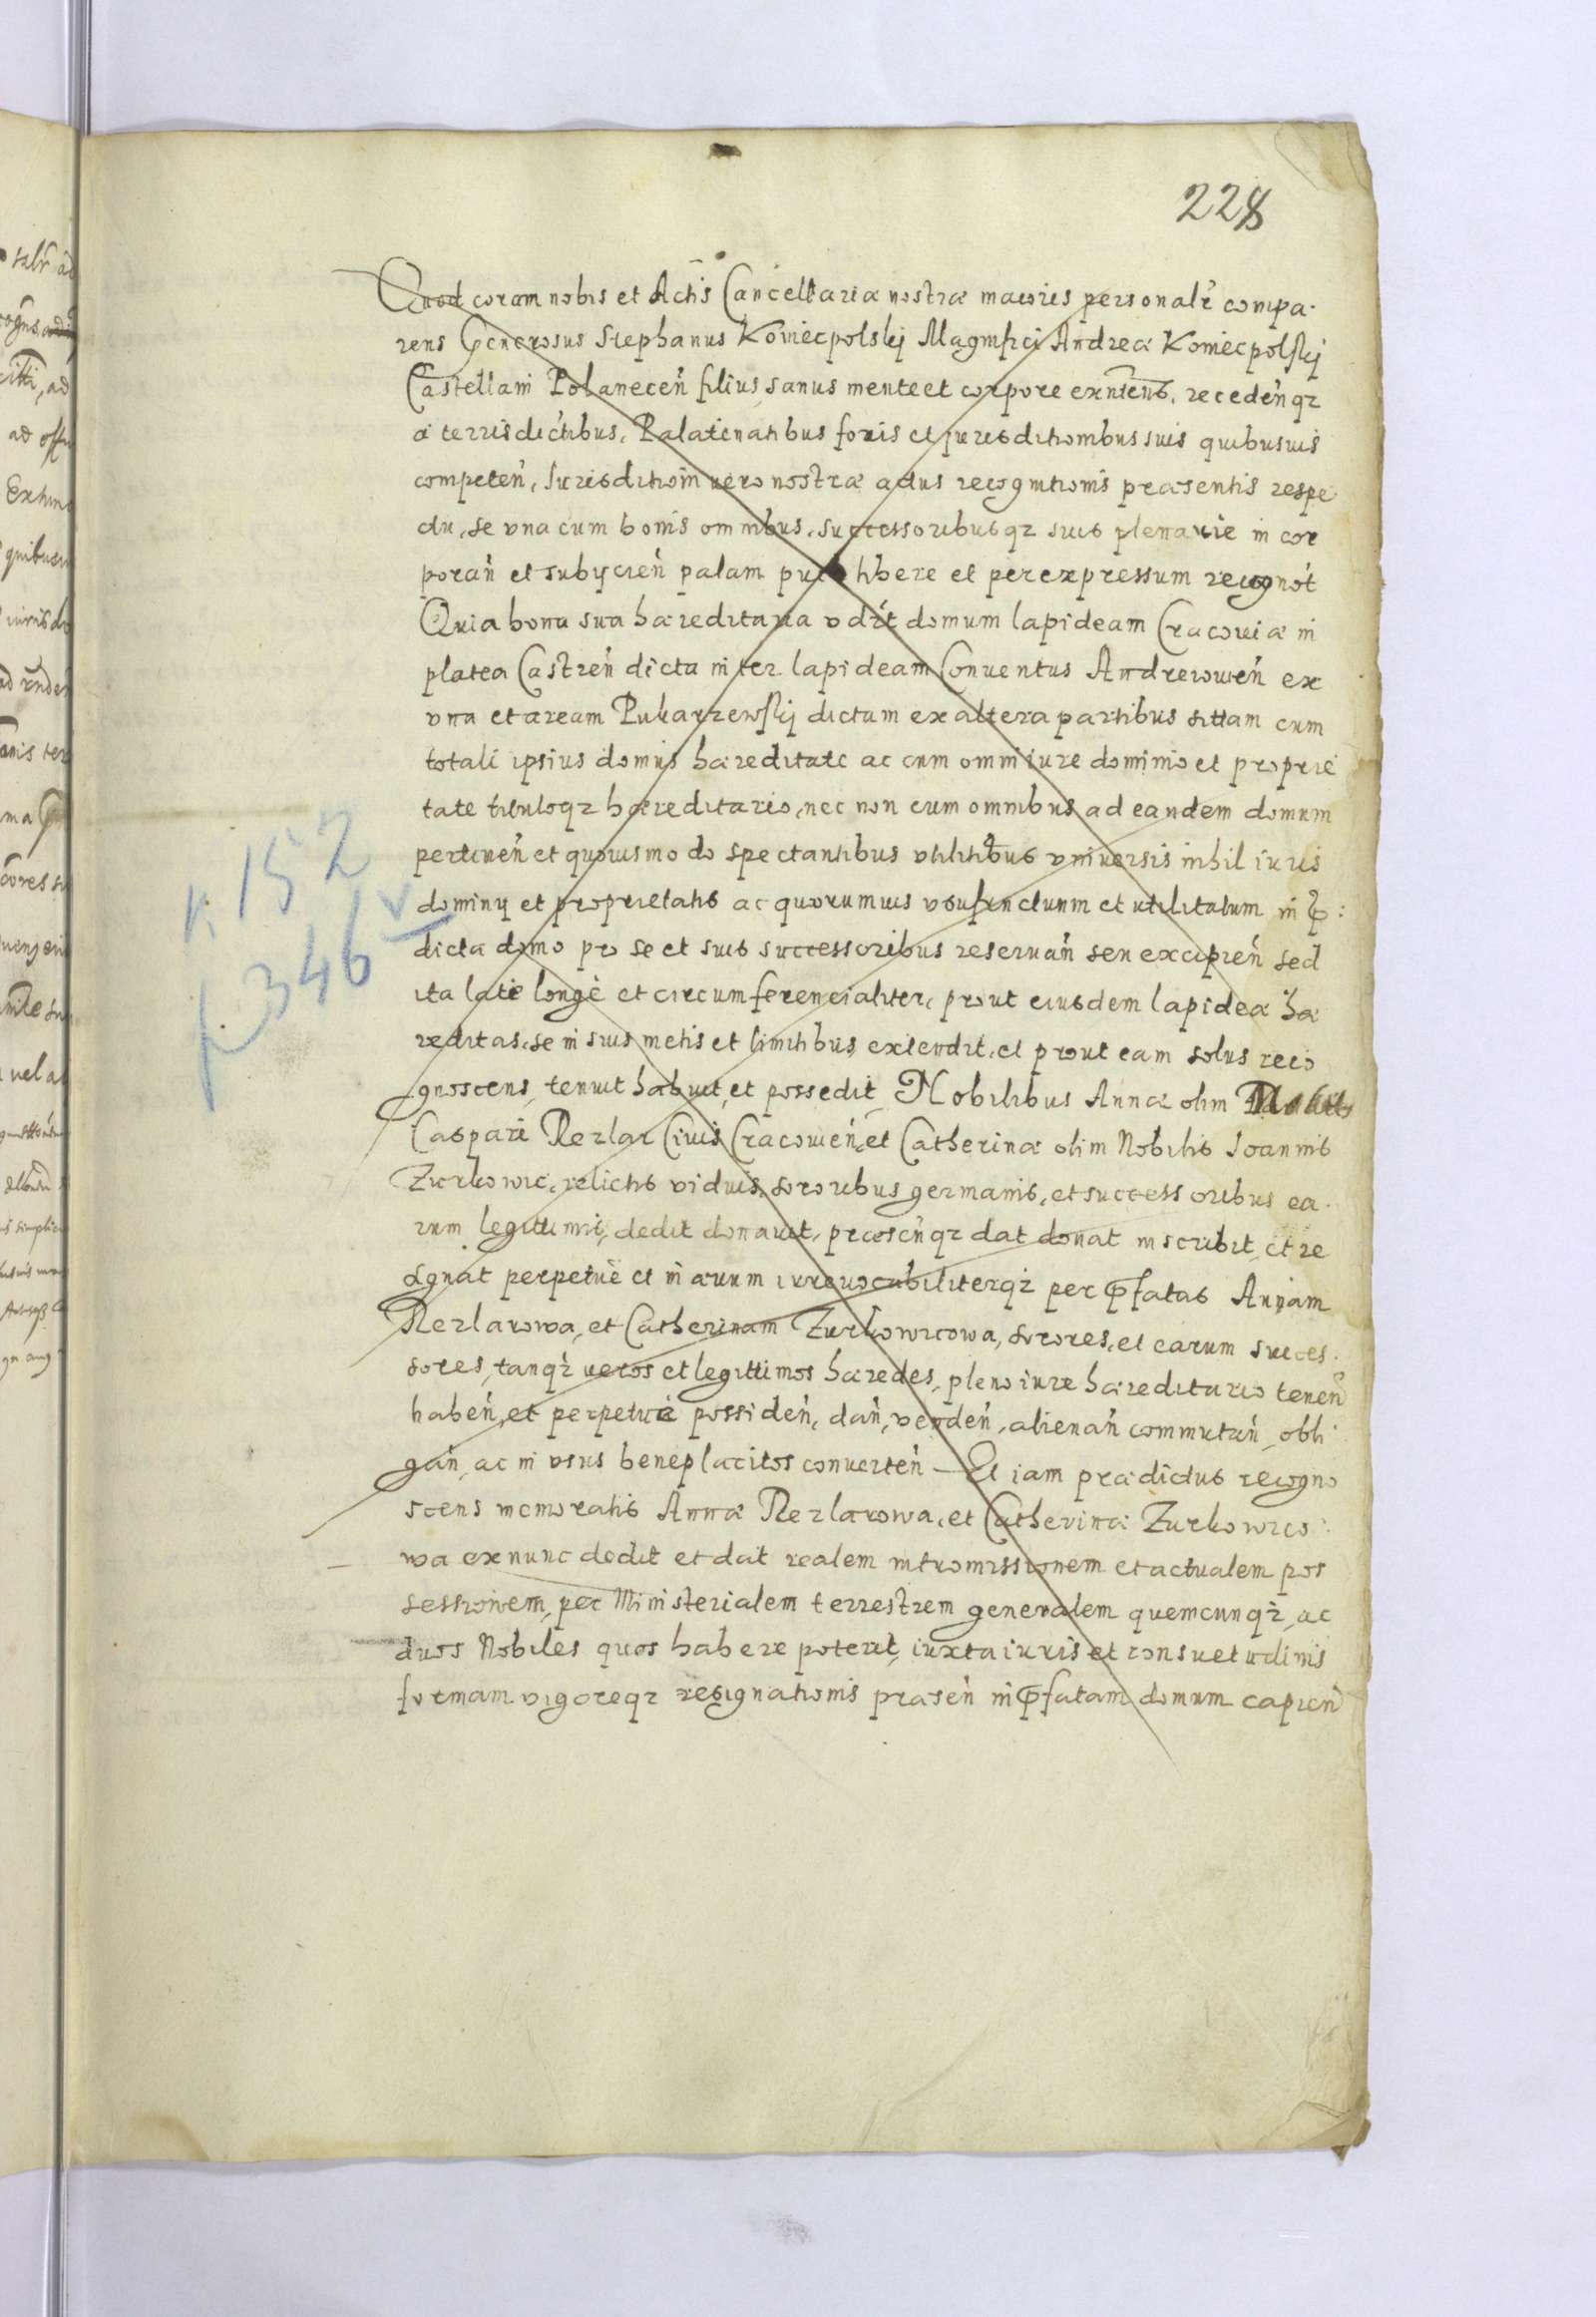 228
Quod coram nobis et Actis Cancellariæ nostræ maioris personalr compa.
rens Generosus Stephanus Koniecpolskij Magnifici Andreæ Koniecpolskij
Castellani Polanecen̄ filius, sanus mente et corpore exn̄tens, receden̄qz
à terris dictibus, Palatinatibus foris et jurisditionibus suis quibusuis
competen̄, Iurisditioni vero nostræ actus recognitionis præsentis respe
ctu, se vna cum bonis omnibus, successoribusqz suis plenarie in cor
poran̄ et subijcien̄ palam pub libere et per expressum recognot
Quia bona sua hæreditaria vdlt domum lapideam Cracouiæ in
platea Castren̄ dicta inter lapideam Conuentus Andreiouien̄ ex
vna et aream Pukarzewskij dictam ex altera partibus sittam cum
totali ipsius domus hæreditate ac cum omni iure dominio et proprie
tate tituloqz hæreditario, nec non cum omnibus ad eandem domum
pertinen̄ et quouismodo spectantibus vtilitibus vniuersis nihil iuris
dominij et proprietatis ac quorumuis vsufructuum et utilitatum in p:
dicta domo pro se et suis successoribus reseruan̄ seu excipien̄ sed
ita late longè et circumferencialiter, prout eiusdem lapideæ hæ
reditas, se in suis metis et limitibus extendit, et prout eam solus reco
gnoscens, tenuit habuit, et possedit Nobilibus Annæ olim Nobilis
Caspari Rezlar Ciuis Cracouien̄, et Catherinæ olim Nobilis Ioannis
Zurkowic, relictis viduis, sororibus germanis, et successoribus ea.
rum legittimis, dedit donauit, præsen̄qz dat donat inscribit, et re
signat perpetuè et in æuum irreuocabiliterqz per pfatas Annam
Rezlarowa, et Catherinam Zurkowicowa, sorores, et earum succes.
sores, tanqz ueros et legittimos hæredes, pleno iure hæreditario tenen̄
haben̄, et perpetuè possiden̄, dan̄, venden̄, alienan̄ commutan̄, obli
gan̄, ac in vsus beneplacitos conuerten̄ — Et iam prædictus recogno
scens memoratis Annæ Rezlarowa, et Catherinæ Zurkowico
wa ex nunc dedit et dat realem intromissionem et actualem pos
sessionem, per Ministerialem terrestrem generalem quemcunqz, ac
duos Nobiles quos habere poterit, iuxta iuris et consuetudinis
formam vigoreqz resignationis præsen̄ in pfatam domum capien̄
k. 152
f. 346 v